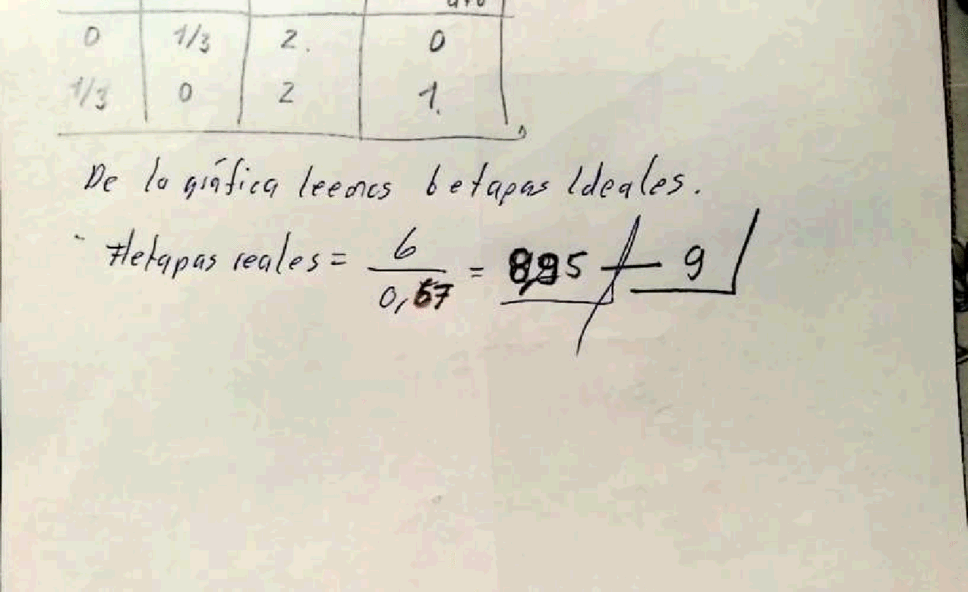 0 1/3 2. 0
1/3 0 2 1.
De la gráfica leemos 6 etapas Ideales.
#etapas reales = 6/0,67 = 8,95 — 9